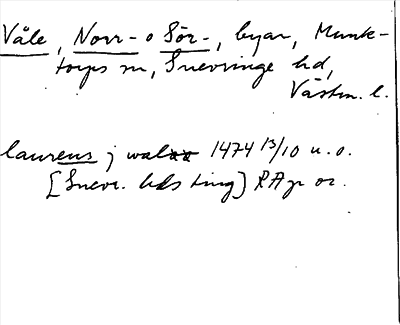 Våle, Norr- o Sör-, byar, Munk-
torps sn, Snevringe hd,
Västm. l.
laurens j walaa 1474 13/10 u.o.
[Snevr. hds ting] RAp or.